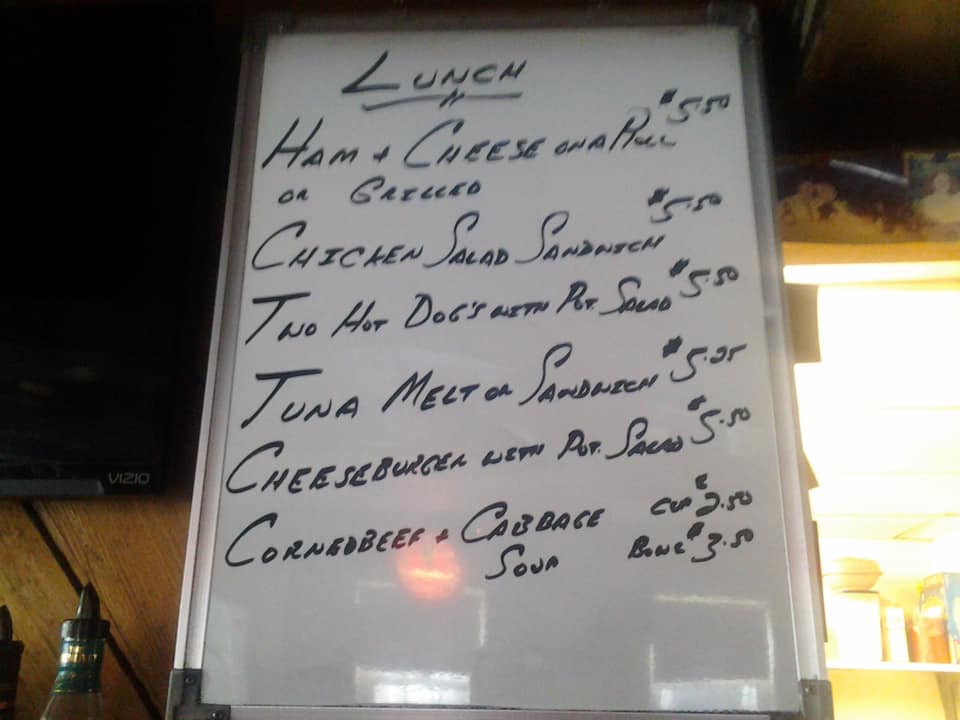 LUNCH
HAM + CHEESE ON A ROLL $5.50
OR GRILLED
CHICKEN SALAD SANDWICH $5.50
TWO HOT DOG'S WITH POT. SALAD $5.50
TUNA MELT OR SANDWICH $5.25
CHEESEBURGER WITH POT. SALAD $5.50
CORNEDBEEF + CABBAGE CUP $2.50
SOUP BOWL $3.50
VIZIO